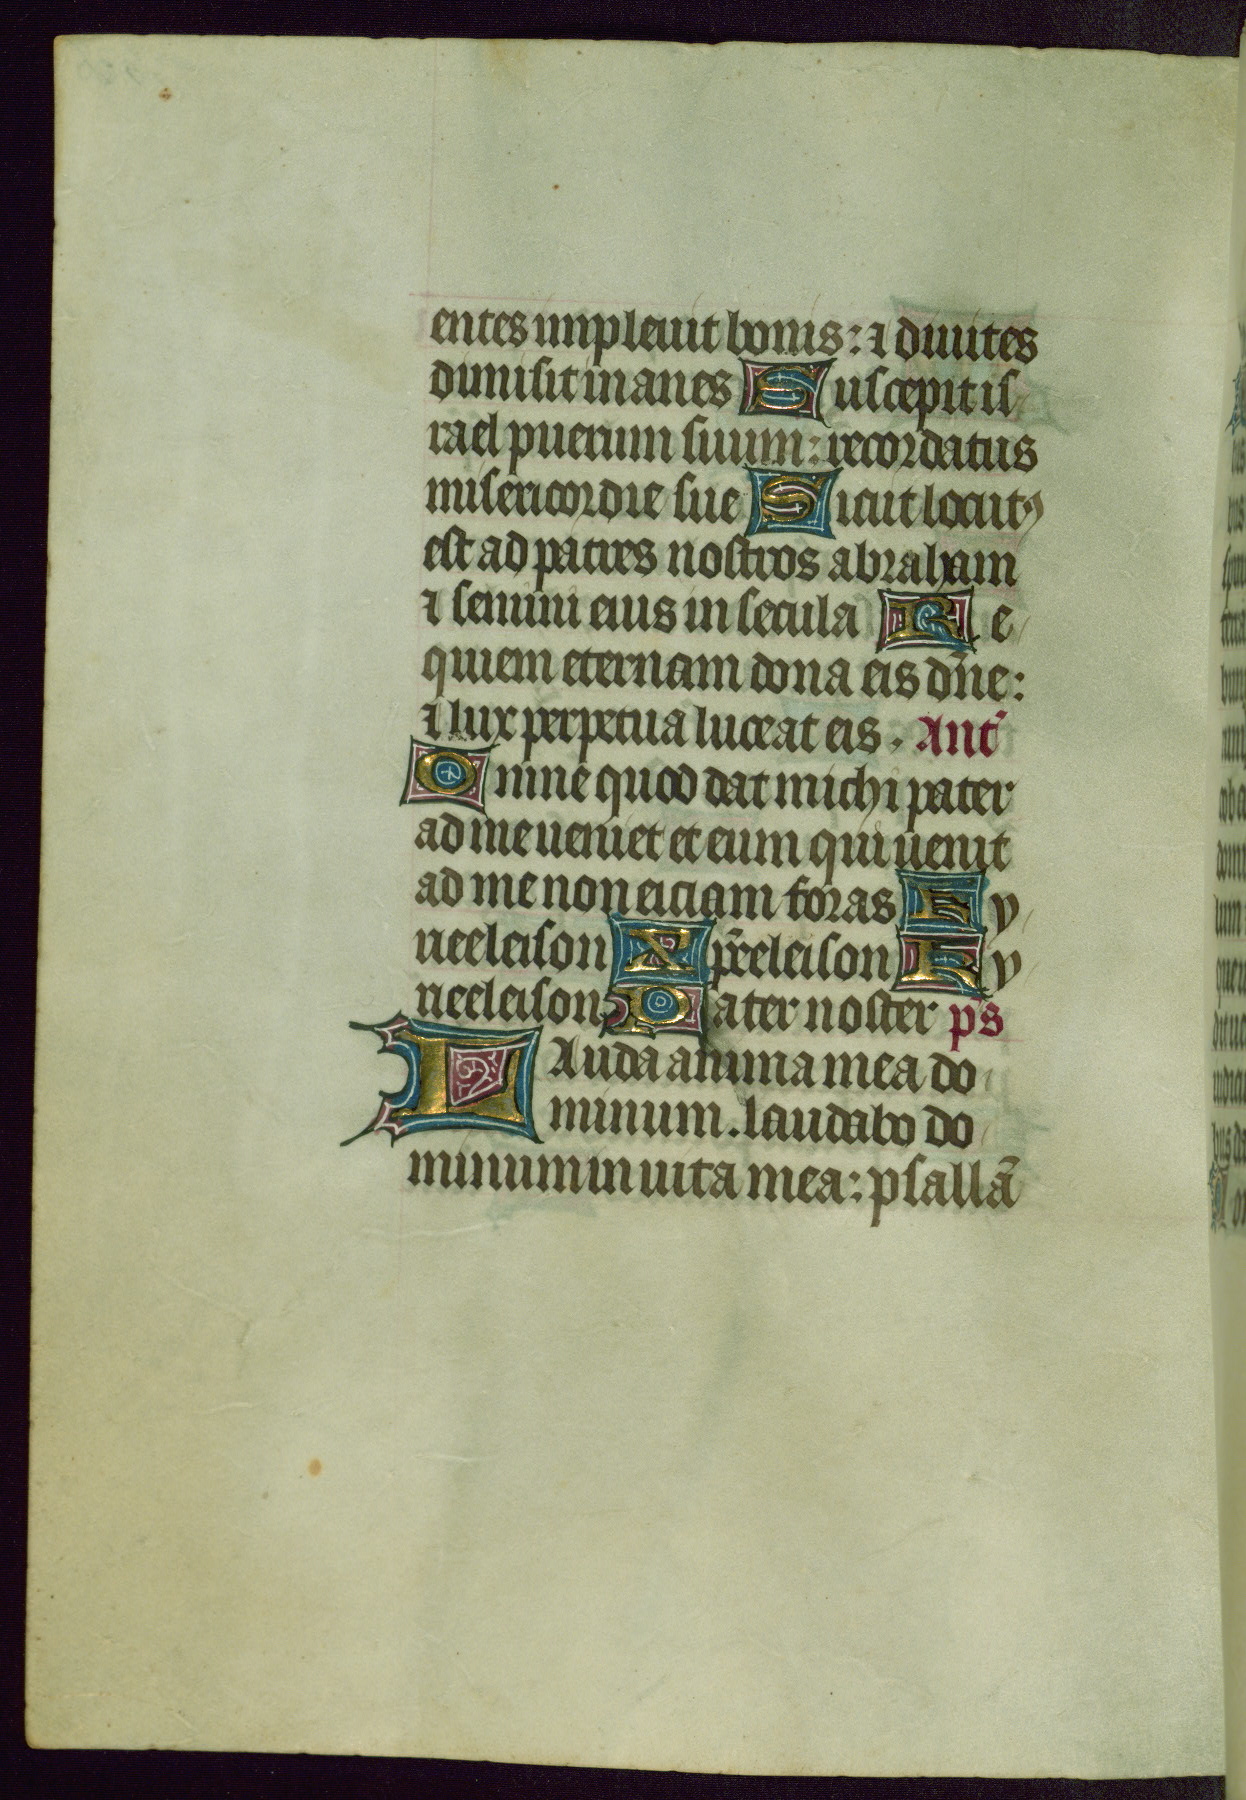 entes impleuit bonis: ⁊ diuites
dimisit inanes Suscepit is
rael puerum suum: recordatus
misericordie sue Sicut locutꝰ
est ad patres nostros abraham
⁊ semini eius in secula Re
quiem eternam dona eis dn̄e:
⁊ lux perpetua luceat eis. Ant̄
Omne quod dat michi pater
ad me ueniet et eum qui uenit
ad me non eiciam foras Ky
rieeleison Xp̄eeleison Ky
rieeleison Pater noster ps̄
Lauda anima mea do
minum. laudabo do
minum in uita mea: psallā